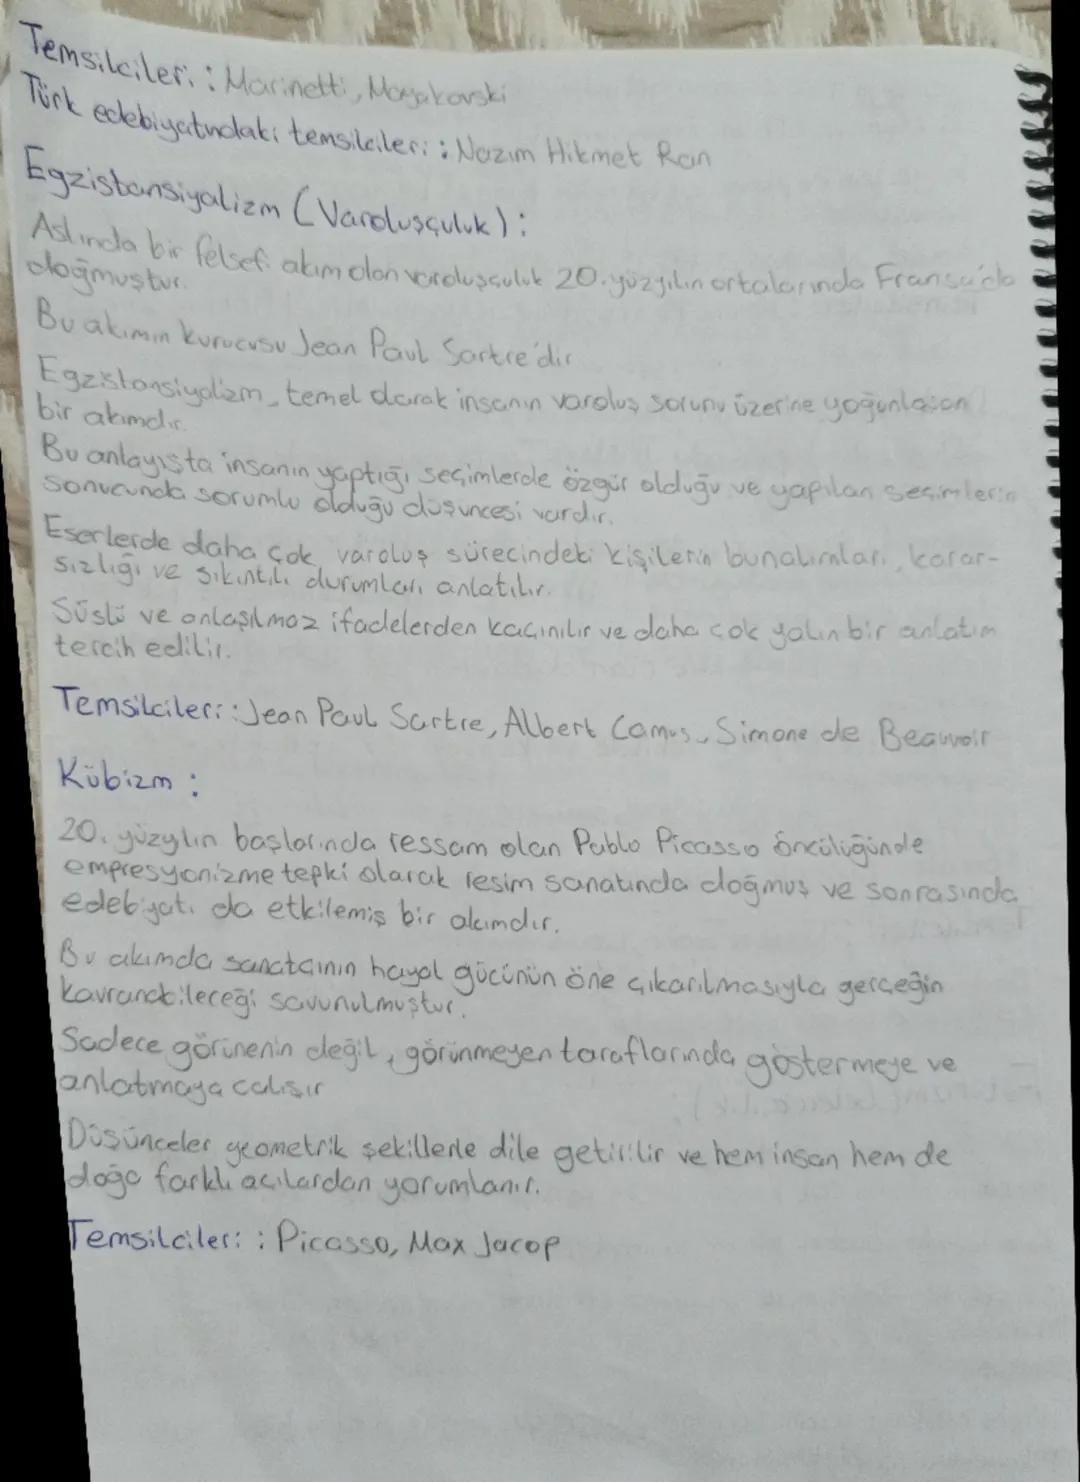 Temsilcileri : Marinetti, Mayakovski
Türk edebiyatındaki temsilcileri : Nazım Hikmet Ran
Egzistansiyalizm (Varoluşçuluk) :
Aslında bir felsefi akım olan varoluşçuluk 20. yüzyılın ortalarında Fransa'da
doğmuştur.
Bu akımın kurucusu Jean Paul Sartre'dir
Egzistansiyalizm, temel olarak insanın varoluş sorunu üzerine yoğunlaşan
bir akımdır.
Bu anlayışta insanın yaptığı seçimlerde özgür olduğu ve yapılan seçimlerin
sonucunda sorumlu olduğu düşüncesi vardır.
Eserlerde daha çok varoluş sürecindeki kişilerin bunalımları, karar-
sızlığı ve sıkıntılı durumları anlatılır.
Süslü ve anlaşılmaz ifadelerden kaçınılır ve daha çok yalın bir anlatım
tercih edilir.
Temsilcileri : Jean Paul Sartre, Albert Camus, Simone de Beauvoir
Kübizm :
20. yüzyılın başlarında ressam olan Pablo Picasso öncülüğünde
empresyonizme tepki olarak resim sanatında doğmuş ve sonrasında
edebiyatı da etkilemiş bir akımdır.
Bu akımda sanatçının hayal gücünün öne çıkarılmasıyla gerçeğin
kavranabileceği savunulmuştur.
Sadece görünenin değil, görünmeyen taraflarında göstermeye ve
anlatmaya çalışır
Düşünceler geometrik şekillerle dile getirilir ve hem insan hem de
doğa farklı açılardan yorumlanır.
Temsilcileri : Picasso, Max Jacop